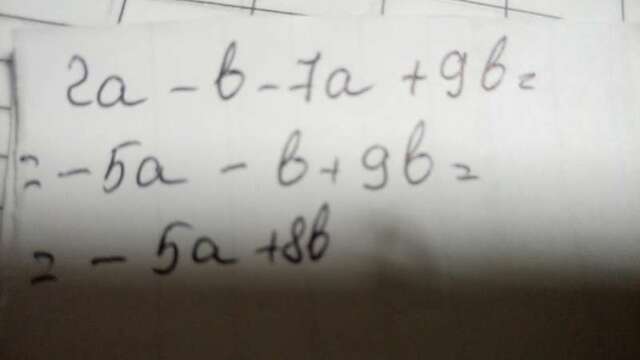 2a - b - 7a + 9b =
= - 5a - b + 9b =
= - 5a + 8b